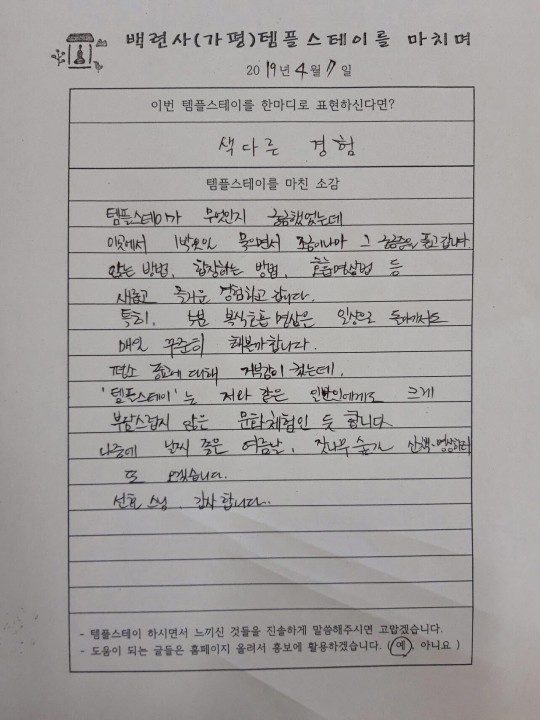 백련사(가평)템플스테이를 마치며
2019년 4월 7일
이번 템플스테이를 한마디로 표현하신다면?
색다른 경험
템플스테이를 마친 소감
템플스테이가 무엇인지 궁금했었는데
이곳에서 1박2일 묵으면서 조금이나마 그 궁금증을 풀고 갑니다.
앉는 방법, 합장하는 방법, 호흡명상법 등
새롭고 즐거운 경험하고 갑니다.
특히, 5분 복식호흡 명상은 일상으로 돌아가서도
매일 꾸준히 해볼까합니다.
평소 종교에 대해 거부감이 컸는데,
'템플스테이'는 저와 같은 일반인에게도 크게
부담스럽지 않은 문화체험인 듯 합니다.
나중에 날씨 좋은 여름날, 잣나무 숲가 산책·명상하러
또 오겠습니다.
선효 스님, 감사합니다.
- 템플스테이 하시면서 느끼신 것들을 진솔하게 말씀해주시면 고맙겠습니다.
- 도움이 되는 글들은 홈페이지 올려서 홍보에 활용하겠습니다. ( 예, 아니요 )